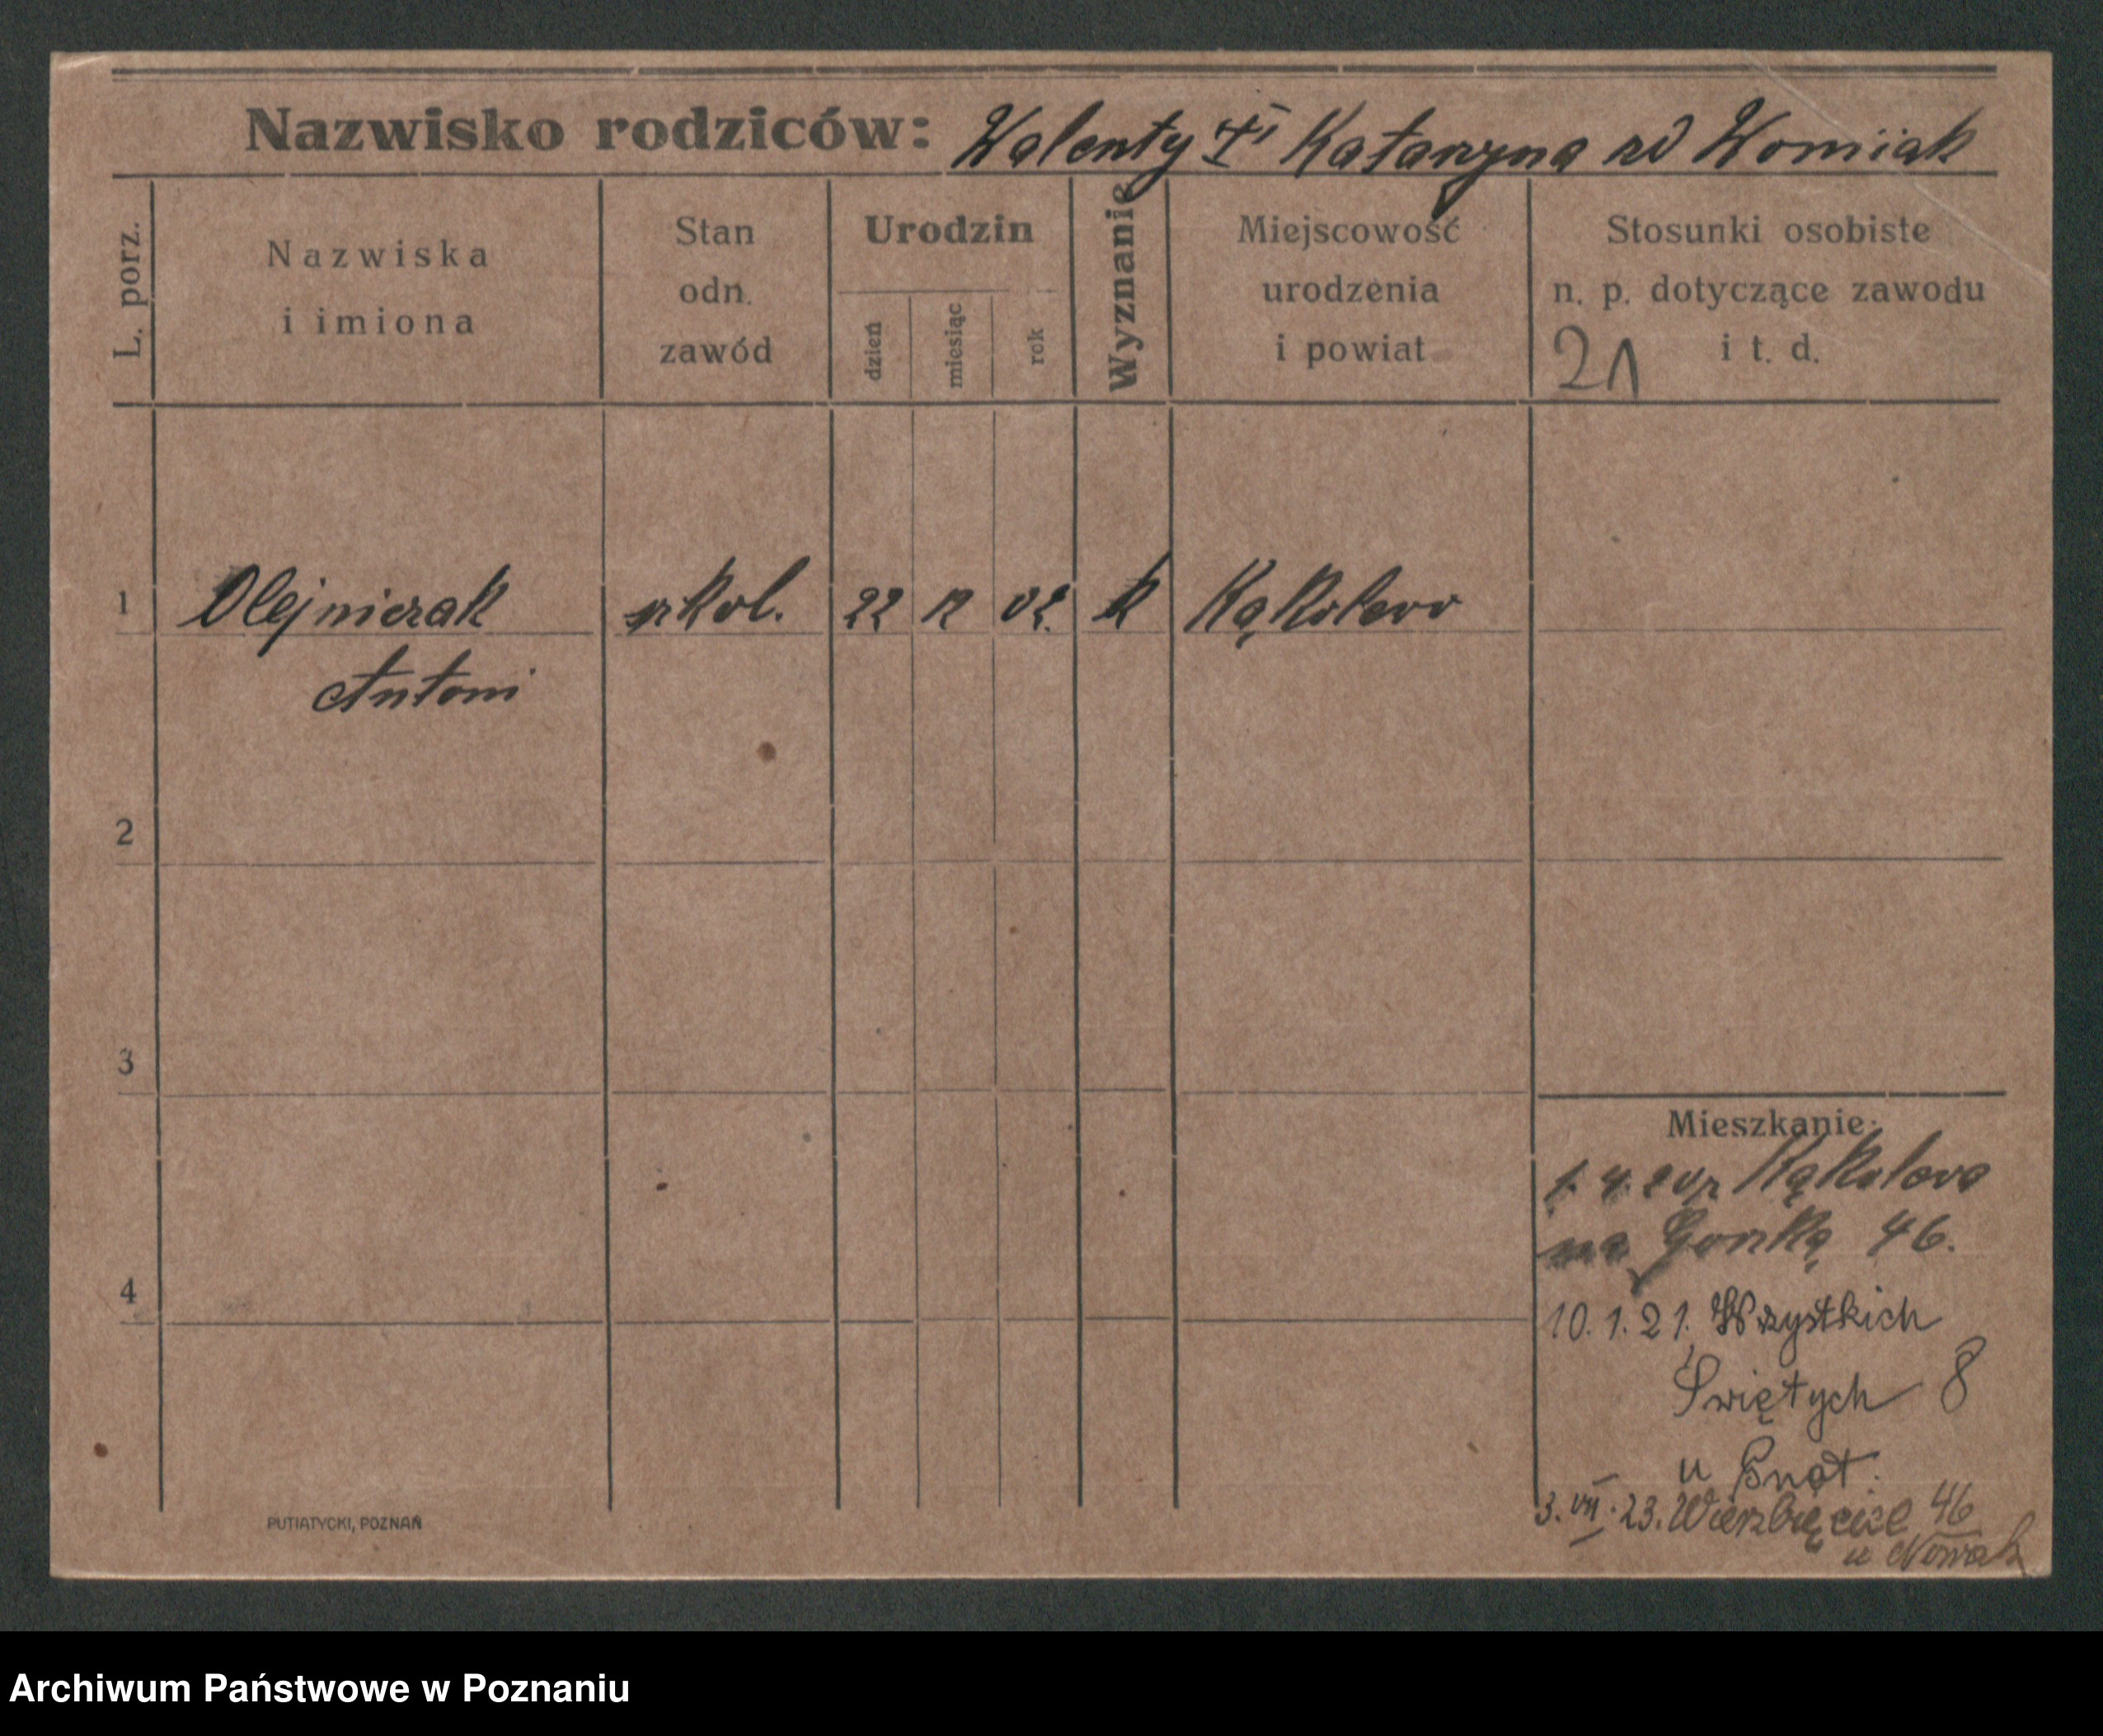 Nazwisko rodziców: Walenty i Katarzyna zd Womiak
L. porz.
Nazwiska
i imiona
Stan
odn.
zawód
Urodzin
dzień
miesiąc
rok
Wyznanie
Miejscowość
urodzenia
i powiat
Stosunki osobiste
n. p. dotyczące zawodu
i t. d.
21
1 Olejniczak szkol. 22 12 02. k Kąkolewo
Antoni
2
3
4
Mieszkanie:
1. 4. 20 z Kąkolewa
na Gorką 46.
10. 1. 21. Wszystkich
Świętych 8
u Gnot.
3. VII. 23. Wierzbięcice 46
u Nowak
PUTIATYCKI, POZNAŃ
Archiwum Państwowe w Poznaniu